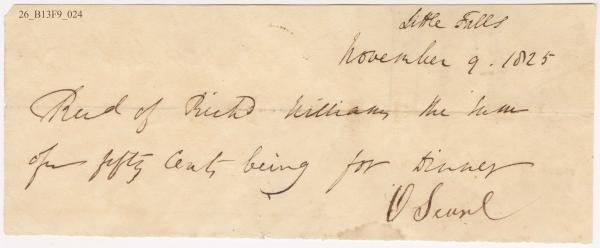 26_B13F9_024
Little Falls
November 9. 1825
Recd of Richd Williams the sum
of fifty Cents being for Dinner
O Searl